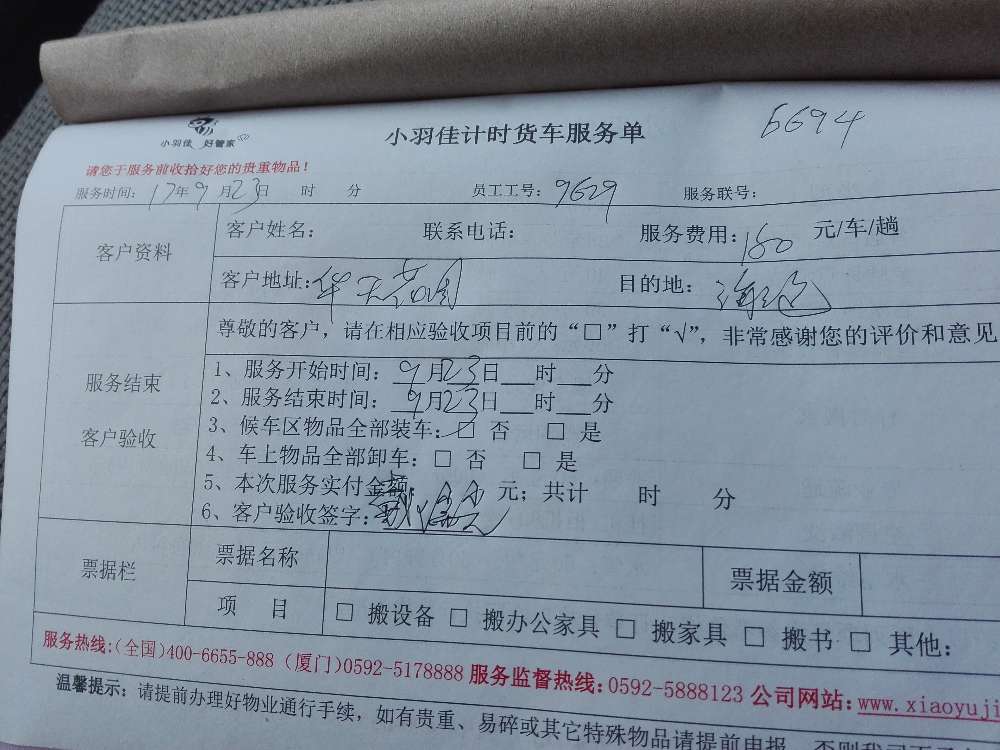 小羽佳 好管家
小羽佳计时货车服务单 6694
请您于服务前收拾好您的贵重物品！
服务时间：17年9月23日 时 分 员工工号：9629 服务联号：
客户资料 客户姓名： 联系电话： 服务费用：160 元/车/趟
客户地址：华天 目的地：
尊敬的客户，请在相应验收项目前的“□”打“√”，非常感谢您的评价和意见
服务结束
客户验收
1、服务开始时间：9月23日__时__分
2、服务结束时间：9月23日__时__分
3、候车区物品全部装车：☑ 否 □ 是
4、车上物品全部卸车：□ 否 □ 是
5、本次服务实付金额： 元；共计 时 分
6、客户验收签字：
票据栏 票据名称 票据金额
项 目 □ 搬设备 □ 搬办公家具 □ 搬家具 □ 搬书 □ 其他：
服务热线：(全国)400-6655-888 (厦门)0592-5178888 服务监督热线：0592-5888123 公司网站：www.xiaoyuji
温馨提示：请提前办理好物业通行手续，如有贵重、易碎或其它特殊物品请提前申报，否则我司